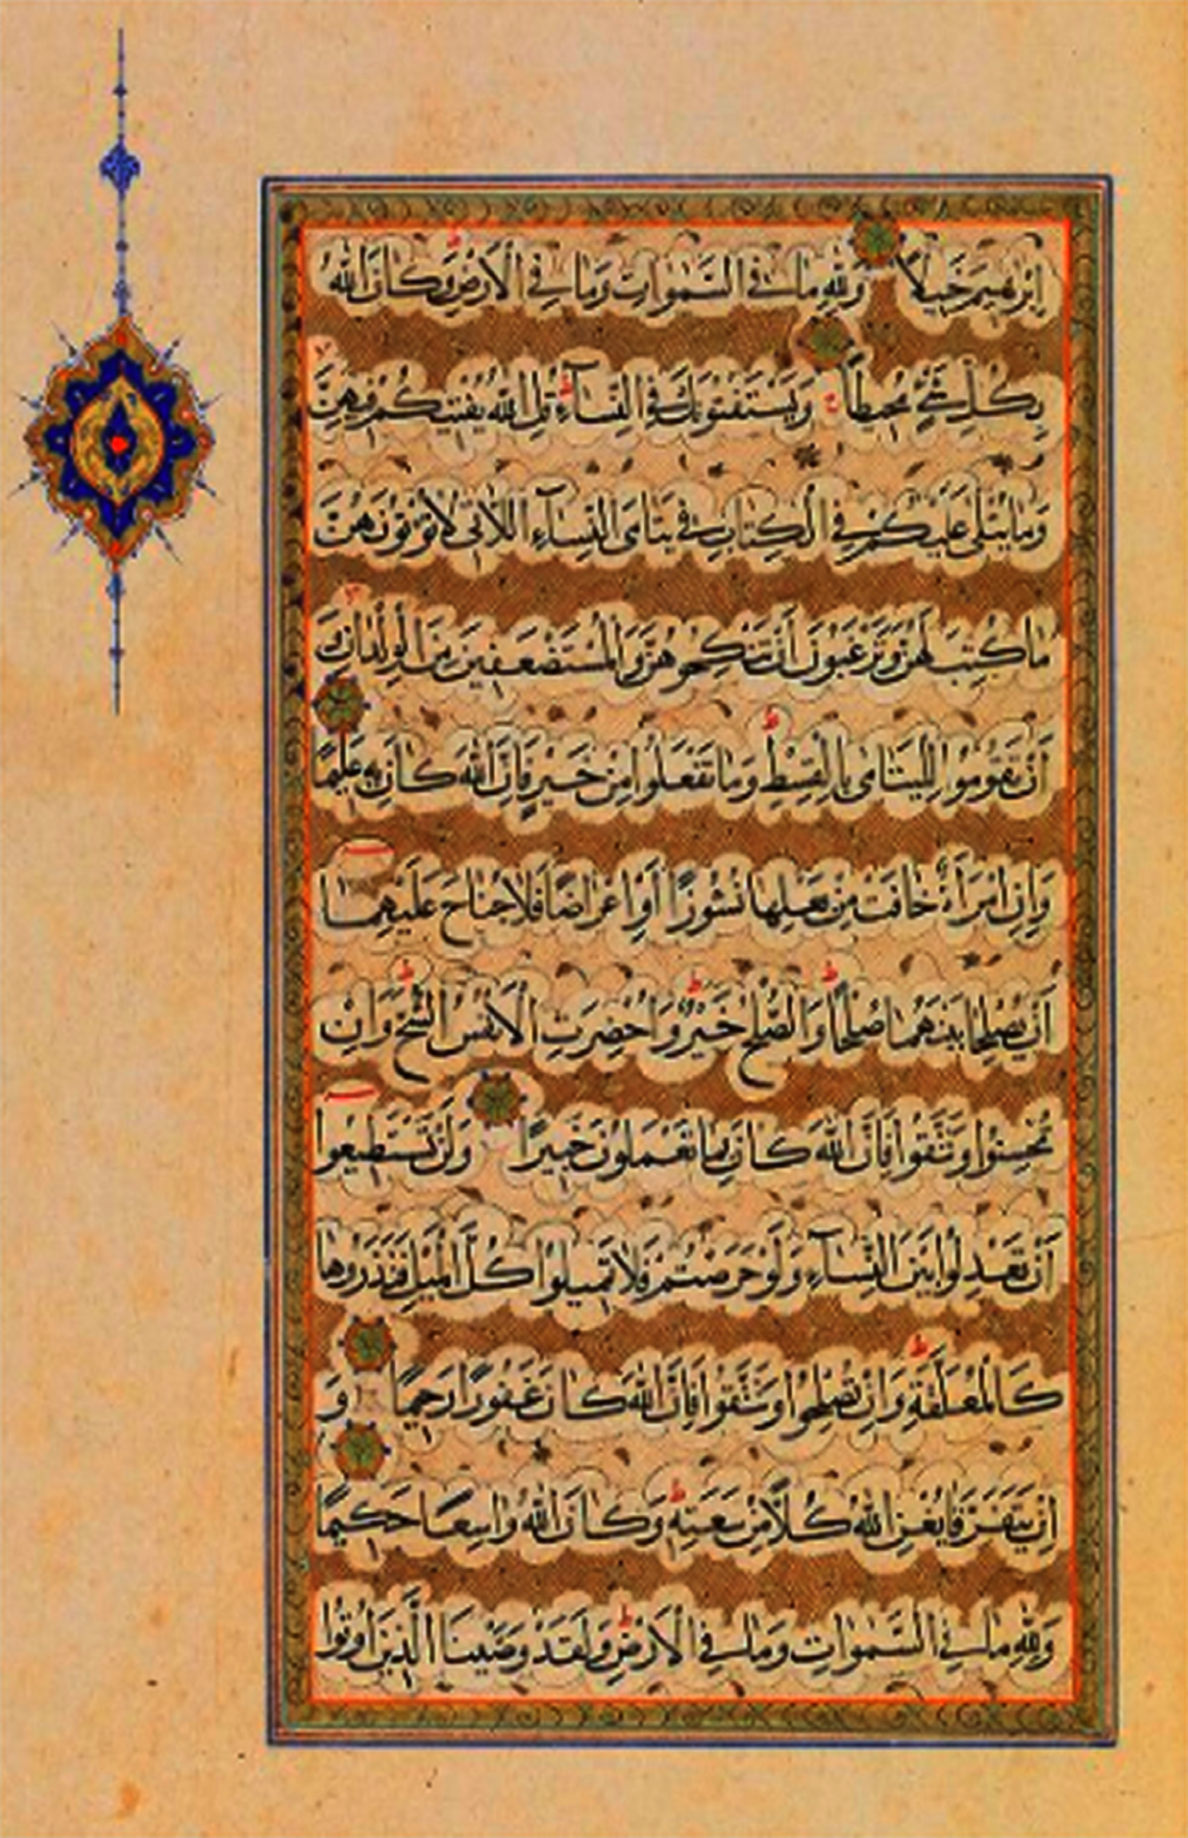 اِبْرٰهيمَ خَليلًا وَلِلّٰهِ مَا فِي السَّمٰوَاتِ وَمَا فِي الْاَرْضِ ط وَكَانَ اللّٰهُ
بِكُلِّ شَيْءٍ مُحيطًا وَيَسْتَفْتُونَكَ فِي النِّسَآءِ ط قُلِ اللّٰهُ يُفْتيكُمْ فيهِنَّ لا
وَمَا يُتْلٰى عَلَيْكُمْ فِي الْكِتَابِ في يَتَامَى النِّسَآءِ اللَّاتي لَا تُؤْتُونَهُنَّ
مَا كُتِبَ لَهُنَّ وَتَرْغَبُونَ اَنْ تَنْكِحُوهُنَّ وَالْمُسْتَضْعَفينَ مِنَ الْوِلْدَانِ لا
اَنْ تَقُومُوا لِلْيَتَامٰى بِالْقِسْطِ ط وَمَا تَفْعَلُوا مِنْ خَيْرٍ فَاِنَّ اللّٰهَ كَانَ بِهِ عَليمًا
وَاِنِ امْرَاَةٌ خَافَتْ مِنْ بَعْلِهَا نُشُوزًا اَوْ اِعْرَاضًا فَلَا جُنَاحَ عَلَيْهِمَا
اَنْ يُصْلِحَا بَيْنَهُمَا صُلْحًا ط وَالصُّلْحُ خَيْرٌ ط وَاُحْضِرَتِ الْاَنْفُسُ الشُّحَّ ط وَاِنْ
تُحْسِنُوا وَتَتَّقُوا فَاِنَّ اللّٰهَ كَانَ بِمَا تَعْمَلُونَ خَبيرًا وَلَنْ تَسْتَطيعُوا
اَنْ تَعْدِلُوا بَيْنَ النِّسَآءِ وَلَوْ حَرَصْتُمْ فَلَا تَميلُوا كُلَّ الْمَيْلِ فَتَذَرُوهَا
كَالْمُعَلَّقَةِ ط وَاِنْ تُصْلِحُوا وَتَتَّقُوا فَاِنَّ اللّٰهَ كَانَ غَفُورًا رَحيمًا وَ
اِنْ يَتَفَرَّقَا يُغْنِ اللّٰهُ كُلًّا مِنْ سَعَتِهِ ط وَكَانَ اللّٰهُ وَاسِعًا حَكيمًا
وَلِلّٰهِ مَا فِي السَّمٰوَاتِ وَمَا فِي الْاَرْضِ ط وَلَقَدْ وَصَّيْنَا الَّذينَ اُوتُوا